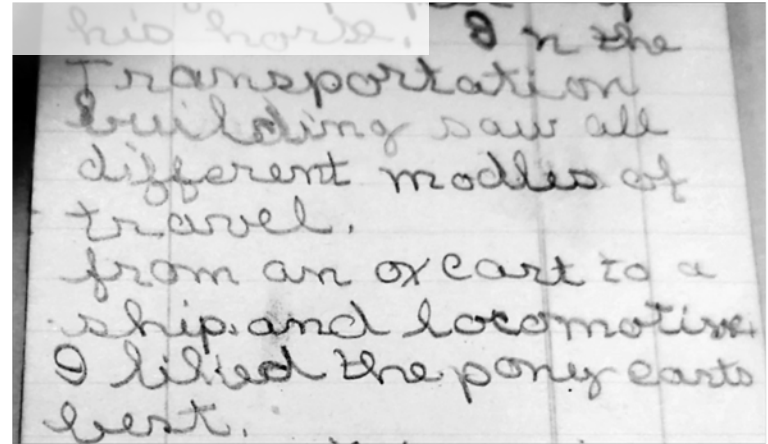 his horse. In the
Transportation
building saw all
different modles of
travel.
from an ox cart to a
ship and locomotive.
I liked the pony carts
best.